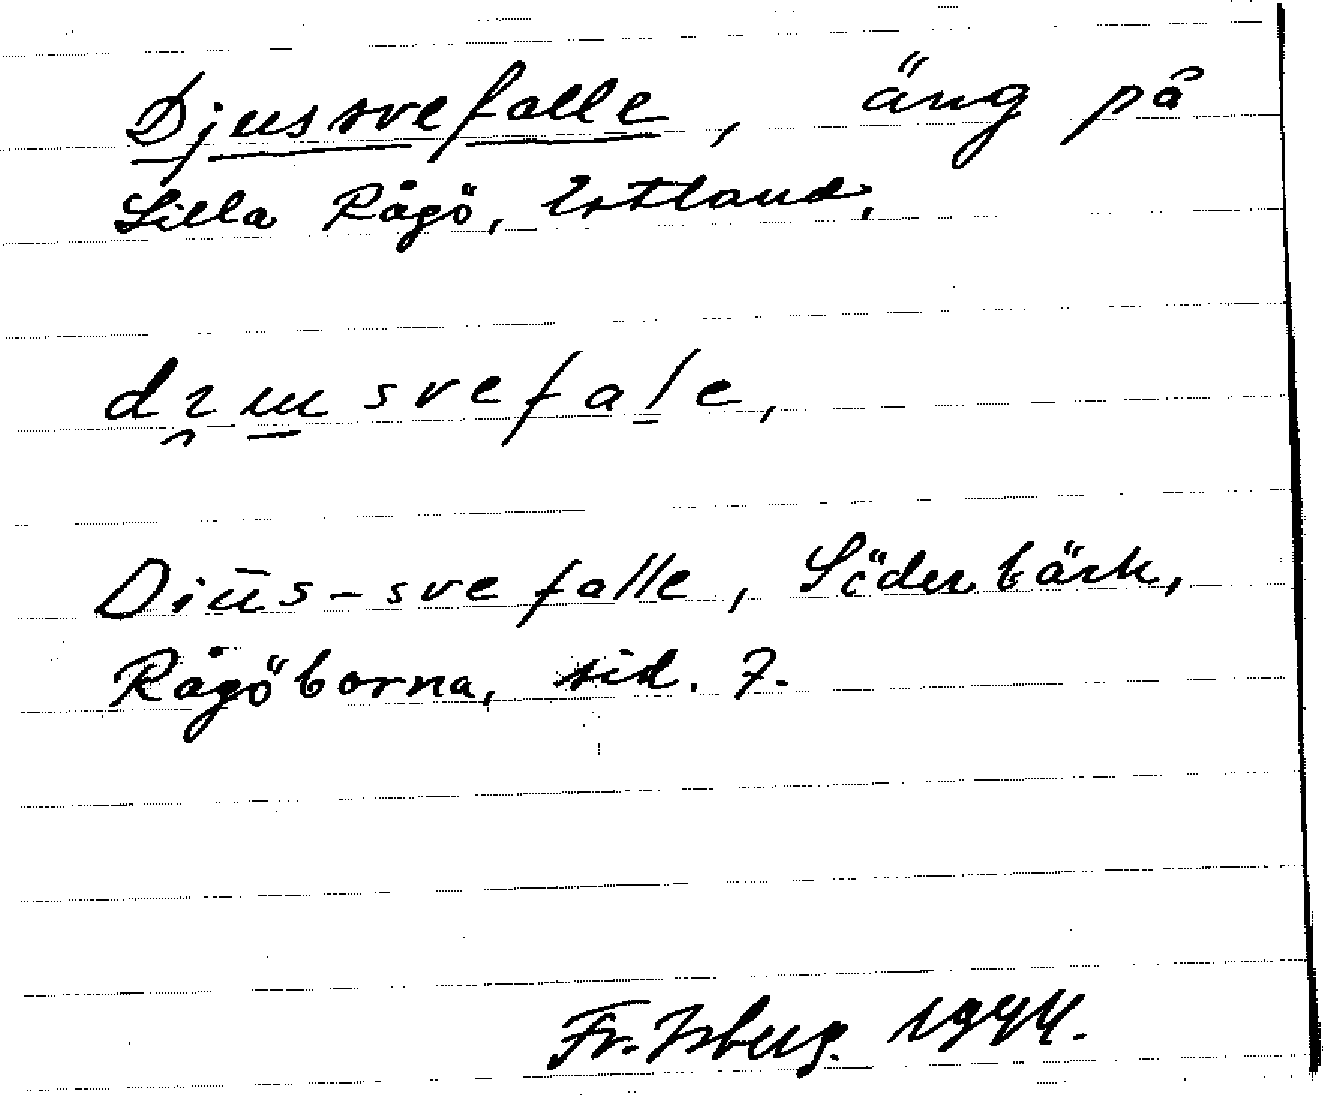 Djussvefalle, äng på
Lilla Rågö, Estland.
Diūs-svefalle, Söderbäck,
Rågöborna, sid. 7.
Fr. Isberg. 1944.